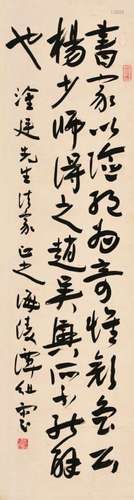 書家以險絕為奇惟顏魯公
楊少師得之趙吳興所不能解
也
淦廷先生法家正之 海陵譚組雲